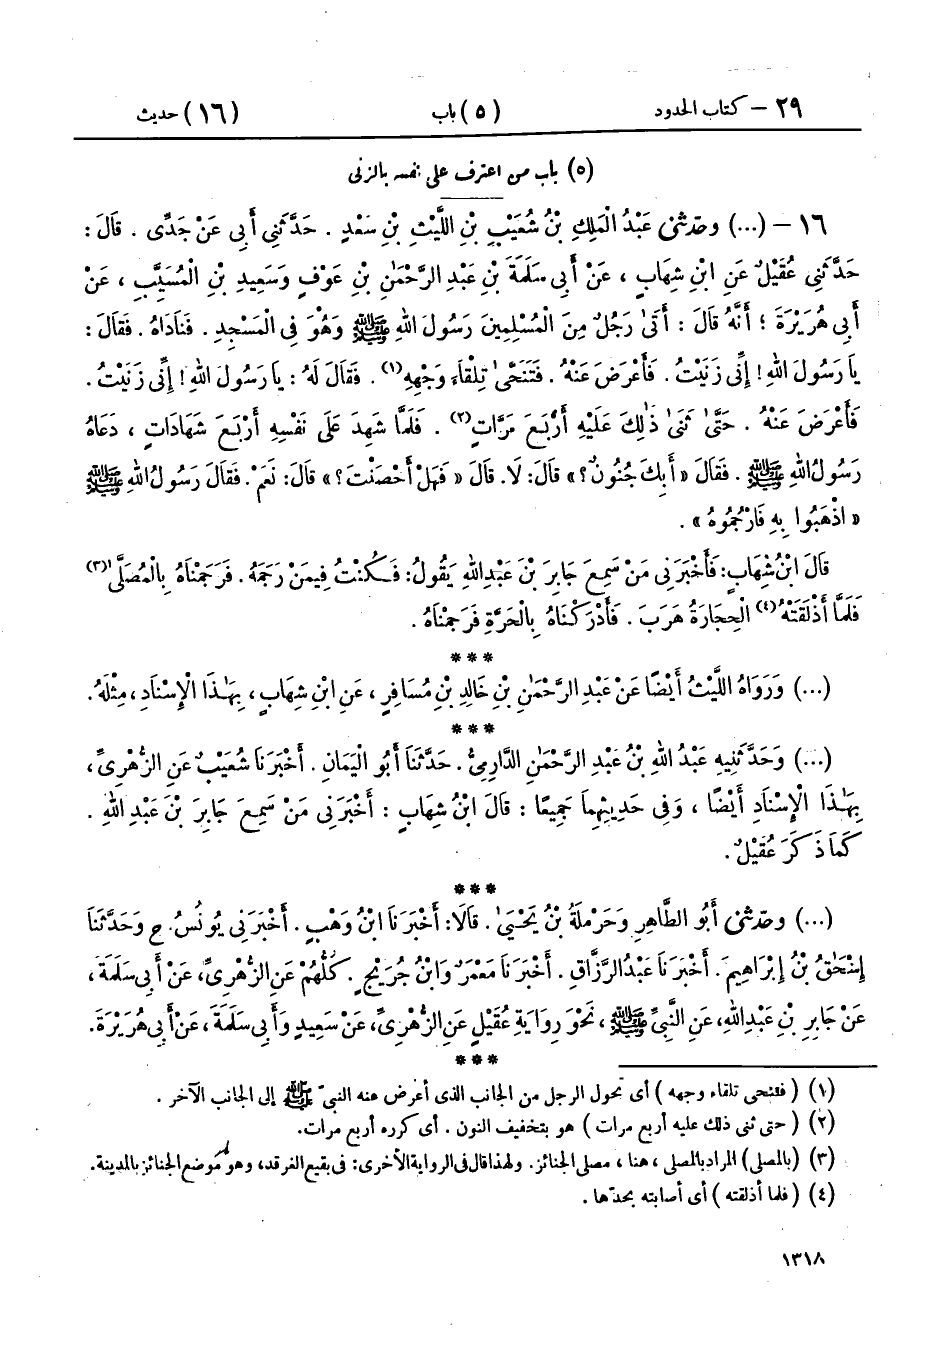 ٢٩ – كتاب الحدود (٥) باب (١٦) حديث
(٥) باب من اعترف على نفسه بالزنى
١٦ – (...) وحدثني عَبْدُ الْمَلِكِ بْنُ شُعَيْبِ بْنِ اللَّيْثِ بْنِ سَعْدٍ . حَدَّثَنِي أَبِي عَنْ جَدِّى . قَالَ :
حَدَّثَنِي عُقَيْلٌ عَنِ ابْنِ شِهَابٍ ، عَنْ أَبِي سَلَمَةَ بْنِ عَبْدِ الرَّحْمَٰنِ بْنِ عَوْفٍ وَسَعِيدِ بْنِ الْمُسَيَّبِ ، عَنْ
أَبِي هُرَيْرَةَ ؛ أَنَّهُ قَالَ : أَتَىٰ رَجُلٌ مِنَ الْمُسْلِمِينَ رَسُولَ اللهِ ﷺ وَهُوَ فِي الْمَسْجِدِ . فَنَادَاهُ . فَقَالَ :
يَا رَسُولَ اللهِ ! إِنِّي زَنَيْتُ . فَأَعْرَضَ عَنْهُ . فَتَنَحَّىٰ تِلْقَاءَ وَجْهِهِ(١) . فَقَالَ لَهُ : يَا رَسُولَ اللهِ ! إِنِّي زَنَيْتُ .
فَأَعْرَضَ عَنْهُ . حَتَّىٰ ثَنَىٰ ذَٰلِكَ عَلَيْهِ أَرْبَعَ مَرَّاتٍ(٢) . فَلَمَّا شَهِدَ عَلَى نَفْسِهِ أَرْبَعَ شَهَادَاتٍ ، دَعَاهُ
رَسُولُ اللهِ ﷺ . فَقَالَ « أَبِكَ جُنُونٌ ؟ » قَالَ : لَا . قَالَ « فَهَلْ أَحْصَنْتَ ؟ » قَالَ : نَعَمْ . فَقَالَ رَسُولُ اللهِ ﷺ
« اذْهَبُوا بِهِ فَارْجُمُوهُ » .
قَالَ ابْنُ شِهَابٍ : فَأَخْبَرَنِي مَنْ سَمِعَ جَابِرَ بْنَ عَبْدِ اللهِ يَقُولُ : فَكُنْتُ فِيمَنْ رَجَمَهُ . فَرَجَمْنَاهُ بِالْمُصَلَّىٰ(٣)
فَلَمَّا أَذْلَقَتْهُ(٤) الْحِجَارَةُ هَرَبَ . فَأَدْرَكْنَاهُ بِالْحَرَّةِ فَرَجَمْنَاهُ .
***
(...) وَرَوَاهُ اللَّيْثُ أَيْضًا عَنْ عَبْدِ الرَّحْمَٰنِ بْنِ خَالِدِ بْنِ مُسَافِرٍ ، عَنِ ابْنِ شِهَابٍ ، بِهَٰذَا الْإِسْنَادِ ، مِثْلَهُ .
***
(...) وَحَدَّثَنِيهِ عَبْدُ اللهِ بْنُ عَبْدِ الرَّحْمَٰنِ الدَّارِمِيُّ . حَدَّثَنَا أَبُو الْيَمَانِ . أَخْبَرَنَا شُعَيْبٌ عَنِ الزُّهْرِيِّ ،
بِهَٰذَا الْإِسْنَادِ أَيْضًا ، وَفِي حَدِيثِهِمَا جَمِيعًا : قَالَ ابْنُ شِهَابٍ : أَخْبَرَنِي مَنْ سَمِعَ جَابِرَ بْنَ عَبْدِ اللهِ .
كَمَا ذَكَرَ عُقَيْلٌ .
***
(...) وحدثني أَبُو الطَّاهِرِ وَحَرْمَلَةُ بْنُ يَحْيَىٰ . قَالَا : أَخْبَرَنَا ابْنُ وَهْبٍ . أَخْبَرَنِي يُونُسُ . ح وَحَدَّثَنَا
إِسْحَٰقُ بْنُ إِبْرَاهِيمَ . أَخْبَرَنَا عَبْدُ الرَّزَّاقِ . أَخْبَرَنَا مَعْمَرٌ وَابْنُ جُرَيْجٍ . كُلُّهُمْ عَنِ الزُّهْرِيِّ ، عَنْ أَبِي سَلَمَةَ ،
عَنْ جَابِرِ بْنِ عَبْدِ اللهِ ، عَنِ النَّبِيِّ ﷺ ، نَحْوَ رِوَايَةِ عُقَيْلٍ عَنِ الزُّهْرِيِّ ، عَنْ سَعِيدٍ وَأَبِي سَلَمَةَ ، عَنْ أَبِي هُرَيْرَةَ .
***
(١) ( فتنحى تلقاء وجهه ) أى تحول الرجل من الجانب الذى أعرض عنه النبىّ ﷺ إلى الجانب الآخر .
(٢) ( حتى ثنى ذلك عليه أربع مرات ) هو بتخفيف النون . أى كرره أربع مرات .
(٣) ( بالمصلى ) المراد بالمصلى ، هنا ، مصلى الجنائز . ولهذا قال فى الرواية الأخرى : فى بقيع الغرقد ، وهو موضع الجنائز بالمدينة .
(٤) ( فلما أذلقته ) أى أصابته بحدّها .
١٣١٨